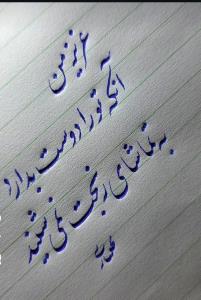 عزیز من
آنکه تو را دوست بدارد
به تماشای رنجت نمی‌نشیند